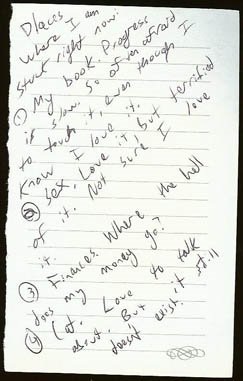 Places
where I am
stuck right now:
① My book. Progress
is slow. So often afraid
to touch it, even though I
know I love it.
② Sex. Love it, but terrified
of it. Not sure I love
it.
③ Finances. Where the hell
does my money go?
④ Cat. Love to talk
about. But it still
doesn't exist.